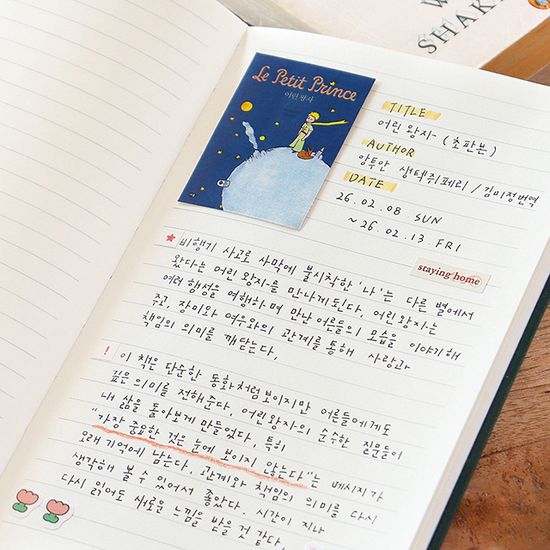 W
SHAK
Le Petit Prince
어린 왕자
TITLE
어린 왕자 - (초판본)
AUTHOR
앙투안 생텍쥐페리 / 김미정번역
DATE
26.02.08 SUN
~ 26.02.13 FRI
staying home
★ 비행기 사고로 사막에 불시착한 '나'는 다른 별에서
왔다는 어린 왕자를 만나게 된다. 어린 왕자는
여러 행성을 여행하며 만난 어른들의 모습을 이야기해
주고, 장미와 여우와의 관계를 통해 사랑과
책임의 의미를 깨닫는다.
! 이 책은 단순한 동화처럼 보이지만 어른들에게도
깊은 의미를 전해준다. 어린 왕자의 순수한 질문들이
내 삶을 돌아보게 만들었다. 특히
"가장 중요한 것은 눈에 보이지 않는다"는 메시지가
오래 기억에 남는다. 관계와 책임의 의미를 다시
생각해 볼 수 있어서 좋았다. 시간이 지나
다시 읽어도 새로운 느낌을 받을 것 같다.